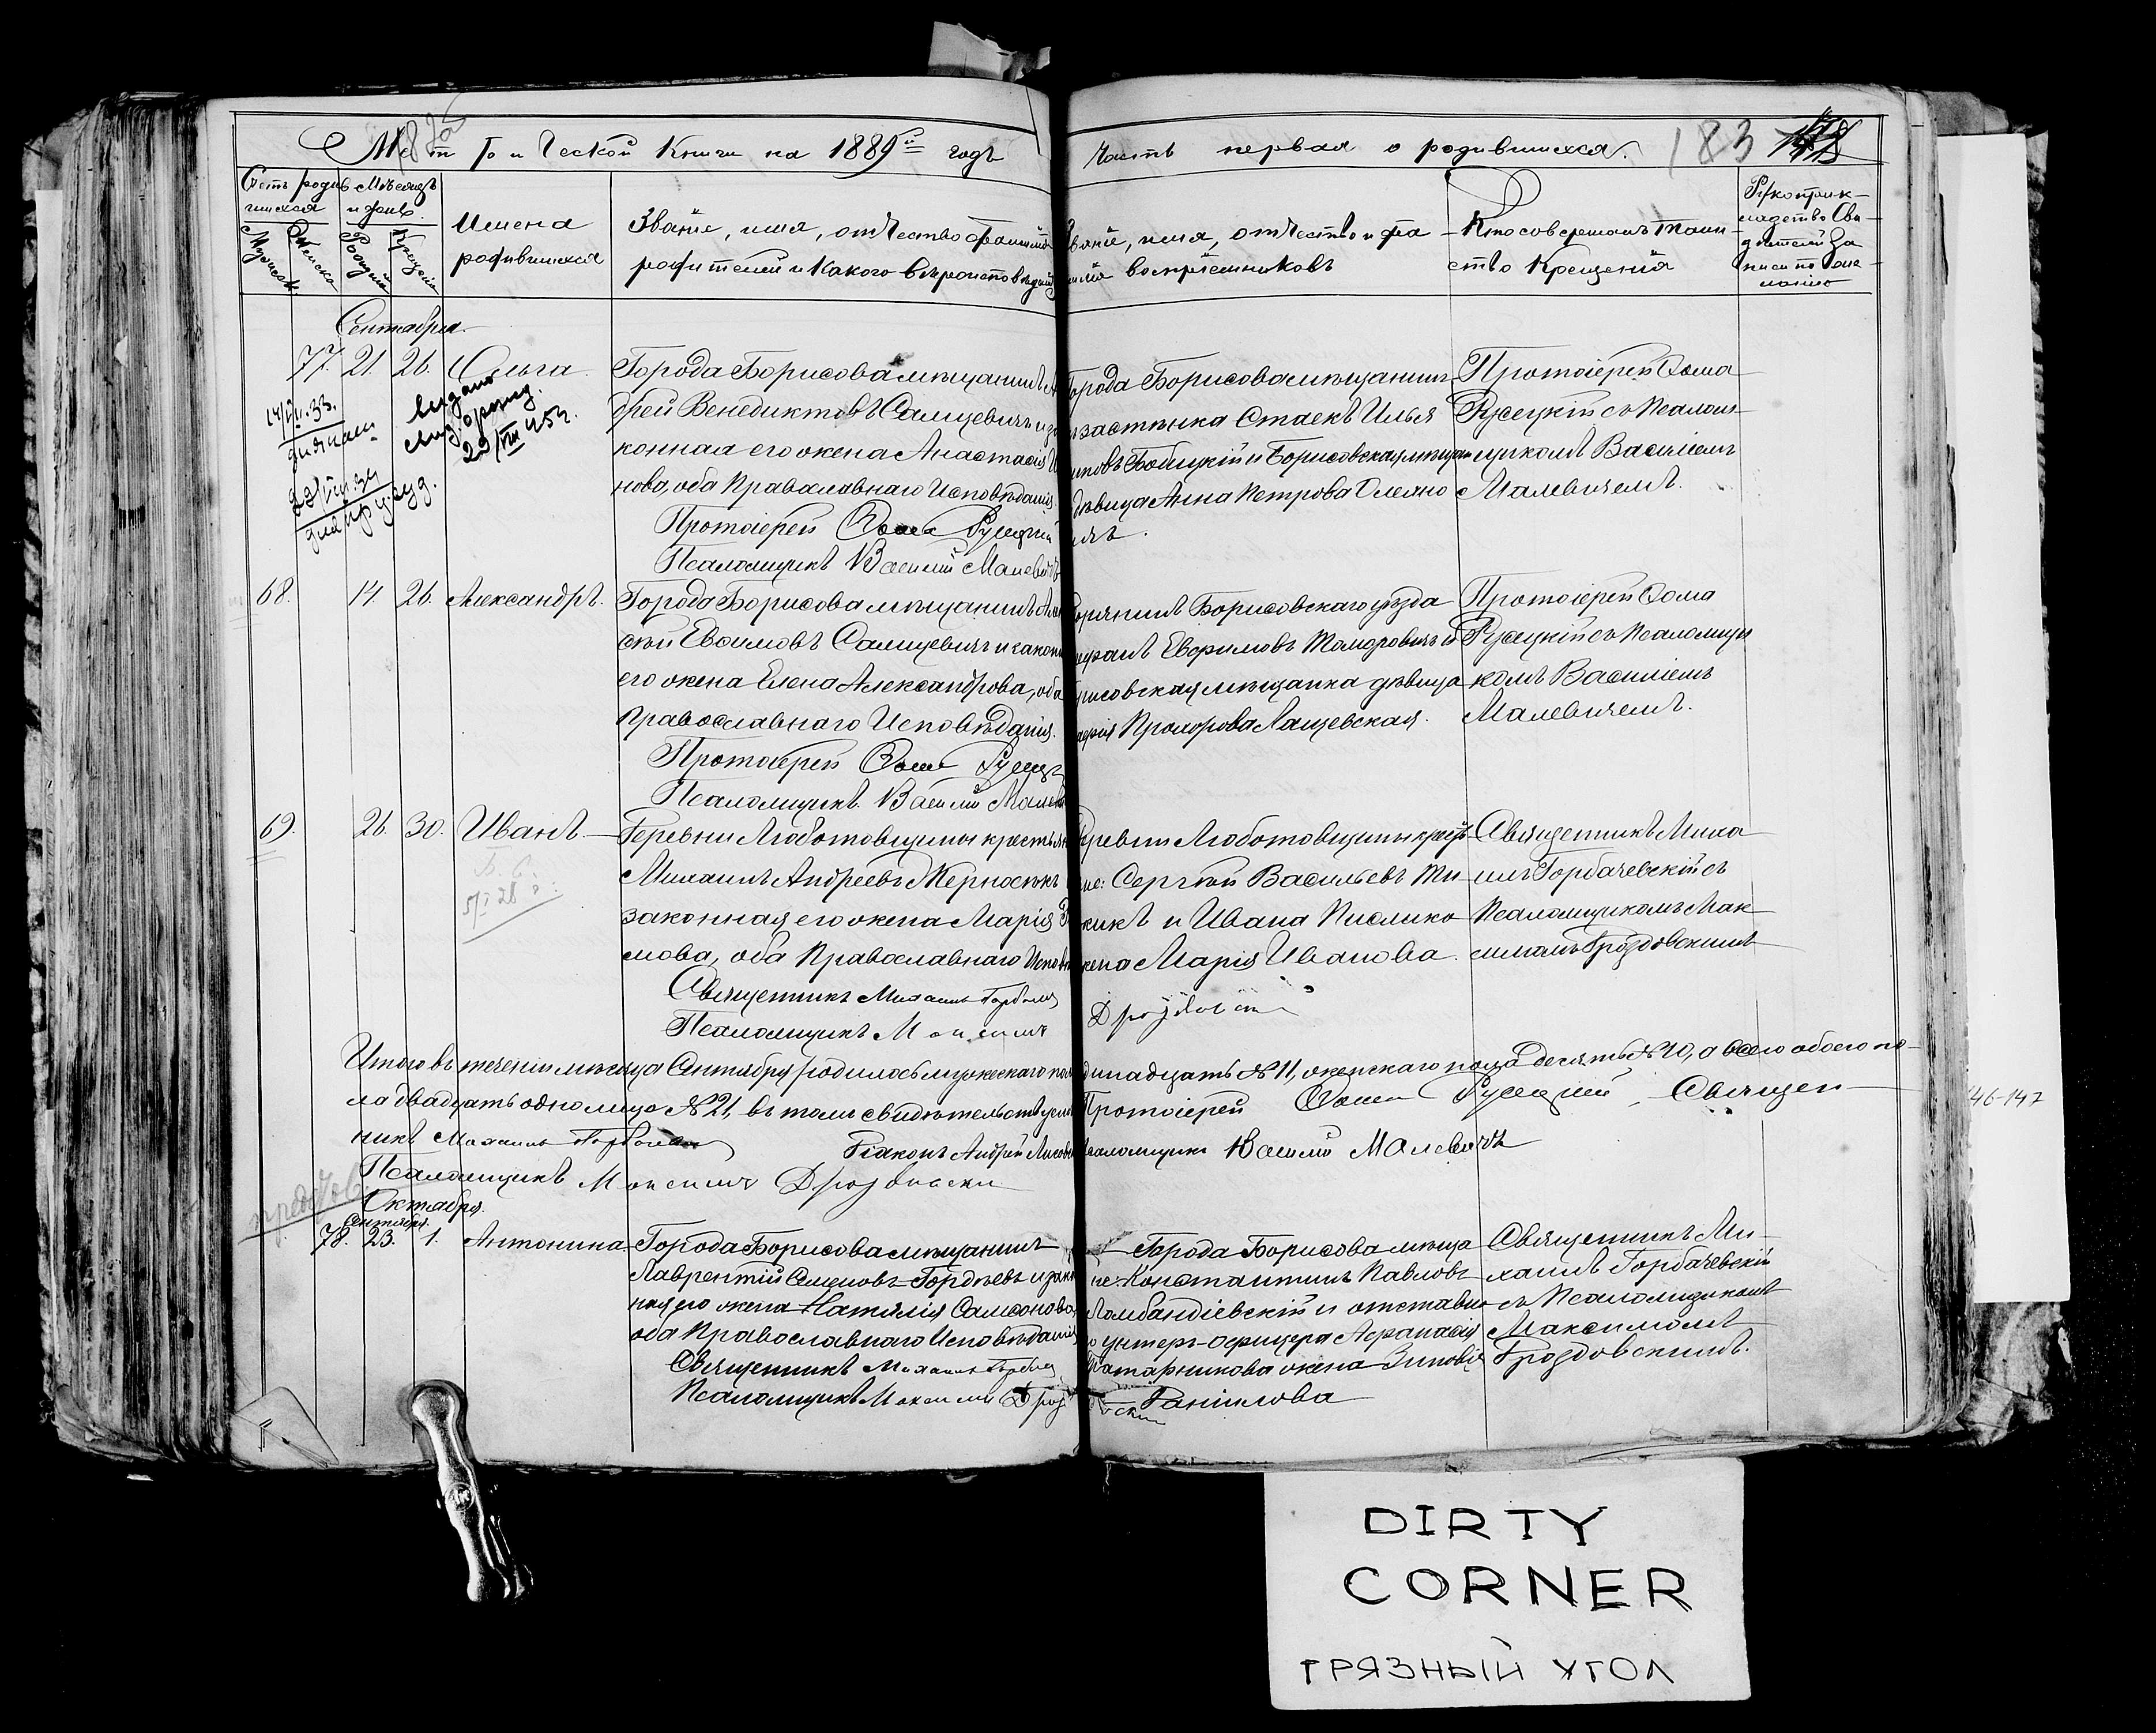 Метрической Книги на 1889й годъ
Часть первая о родившихся.
183
Счетъ родив
шихся
Мужеск.
Женска
Мѣсяцъ
и день.
Рожденія
Крещенія
Имена
родившихся
Званіе, имя, отчество фамилія
родителей и какого вѣроисповѣданія
Званіе, имя, отчество и фа
милія воспріемниковъ
Кто совершалъ таин
ство Крещенія
Рукоприк-
ладство Сви-
дѣтелей За
писи по жела
нію
Сентября.
77. 21. 26. Ольга.
выдано
29/VIII 45г.
Города Борисова мѣщанинъ Ан
дрей Венедиктовъ Самцевичъ и за
конная его жена Анастасія
нова, оба Православнаго Исповѣданія.
Протоіерей Ѳома Русецкій
Псаломщикъ Василій Малевичъ
Города Борисова мѣщанинъ
застѣнка Стаекъ Илья
и Борисовская мѣщан
дѣвица Анна Петрова
Протоіерей Ѳома
Русецкій съ Псалом-
щикомъ Василіемъ
Малевичемъ.
68. 14. 26. Александръ.
Города Борисова мѣщанинъ Але
ксѣй Евѳимовъ Самцевичъ и законн
его жена Елена Александрова, оба
Православнаго Исповѣданія.
Протоіерей Ѳома Русецк
Псаломщикъ Василій Малеви
Борисовскаго уѣзда
Евфимовъ и
рисовская мѣщанка дѣвица
Прохорова Лащевская.
Протоіерей Ѳома
Русецкій съ Псаломщи
комъ Василіемъ
Малевичемъ.
69. 26. 30. Иванъ
5/I 28 г.
Деревни Люботовщины крестьян
Михаилъ Андреевъ Жерносѣкъ
законная его жена Марія
мова, оба Православнаго Исповѣ
Священникъ Михаилъ Горбачев
Псаломщикъ Максимъ
Деревни Люботовщины крест
не: Сергѣй Васильевъ
и Ивана
жена Марія Иванова.
Дроздовскій
Священникъ Миха
илъ Горбачевскій съ
Псаломщикомъ Мак
симомъ Дроздовскимъ
Итого въ теченіи мѣсяца Сентября родилось мужескаго пола
одинадцать № 11, женскаго пола десять № 10, а всего обоего по-
ла двадцать одно лицо № 21, въ томъ свидѣтельствуемъ
Протоіерей Ѳома Русецкій Священ-
никъ Михаилъ Горбачев
Діаконъ Андрей
Псаломщикъ Василій Малевичъ
Псаломщикъ Максимъ Дроздовскій
46-147
Октября.
Сентября.
78. 23. 1. Антонина
Города Борисова мѣщанинъ
Лаврентій Семеновъ Гордѣевъ и закон
ная его жена Наталія Самсонова,
оба Православнаго Исповѣданія
Священникъ Михаилъ Горбачев
Псаломщикъ Максимъ Дрозд
Города Борисова мѣща
не: Константинъ Павловъ
и отставно
го унтеръ-офицера Аѳанасія
Татарникова жена Зиновія
Данілова
Священникъ Ми-
хаилъ Горбачевскій
съ Псаломщикомъ
Максимомъ
Дроздовскимъ.
DIRTY
CORNER
ГРЯЗНЫЙ УГОЛ